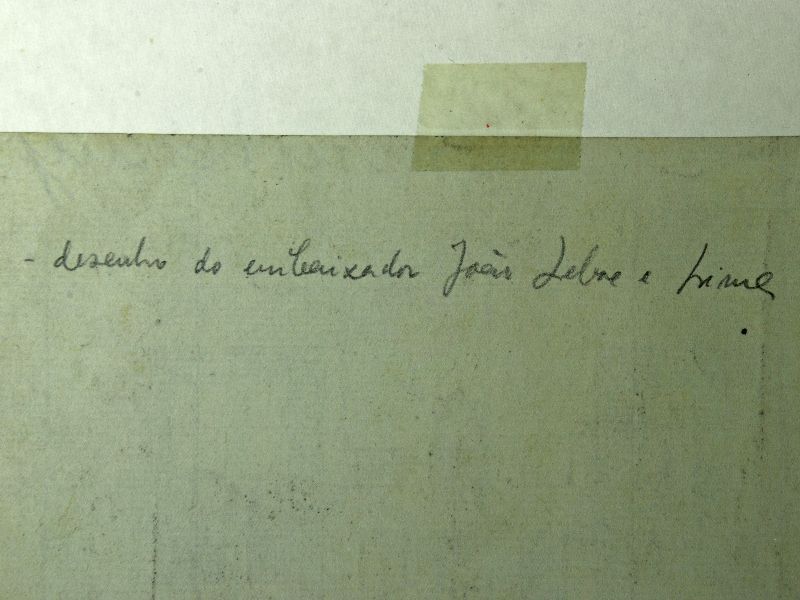 - desenho do embaixador João Lebre e Lima